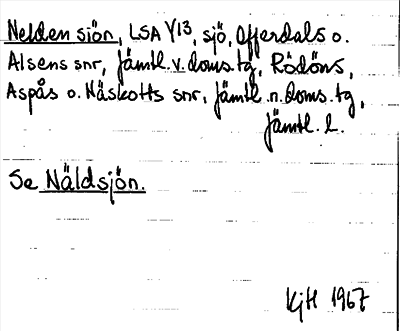 Nelden sjön, LSA Y13, sjö, Offerdals o.
Alsens snr, Jämtl. v. doms. tg, Rödöns,
Aspås o. Näskotts snr, Jämtl. n. doms. tg,
Jämtl. l.
Se Näldsjön.
KjH 1967